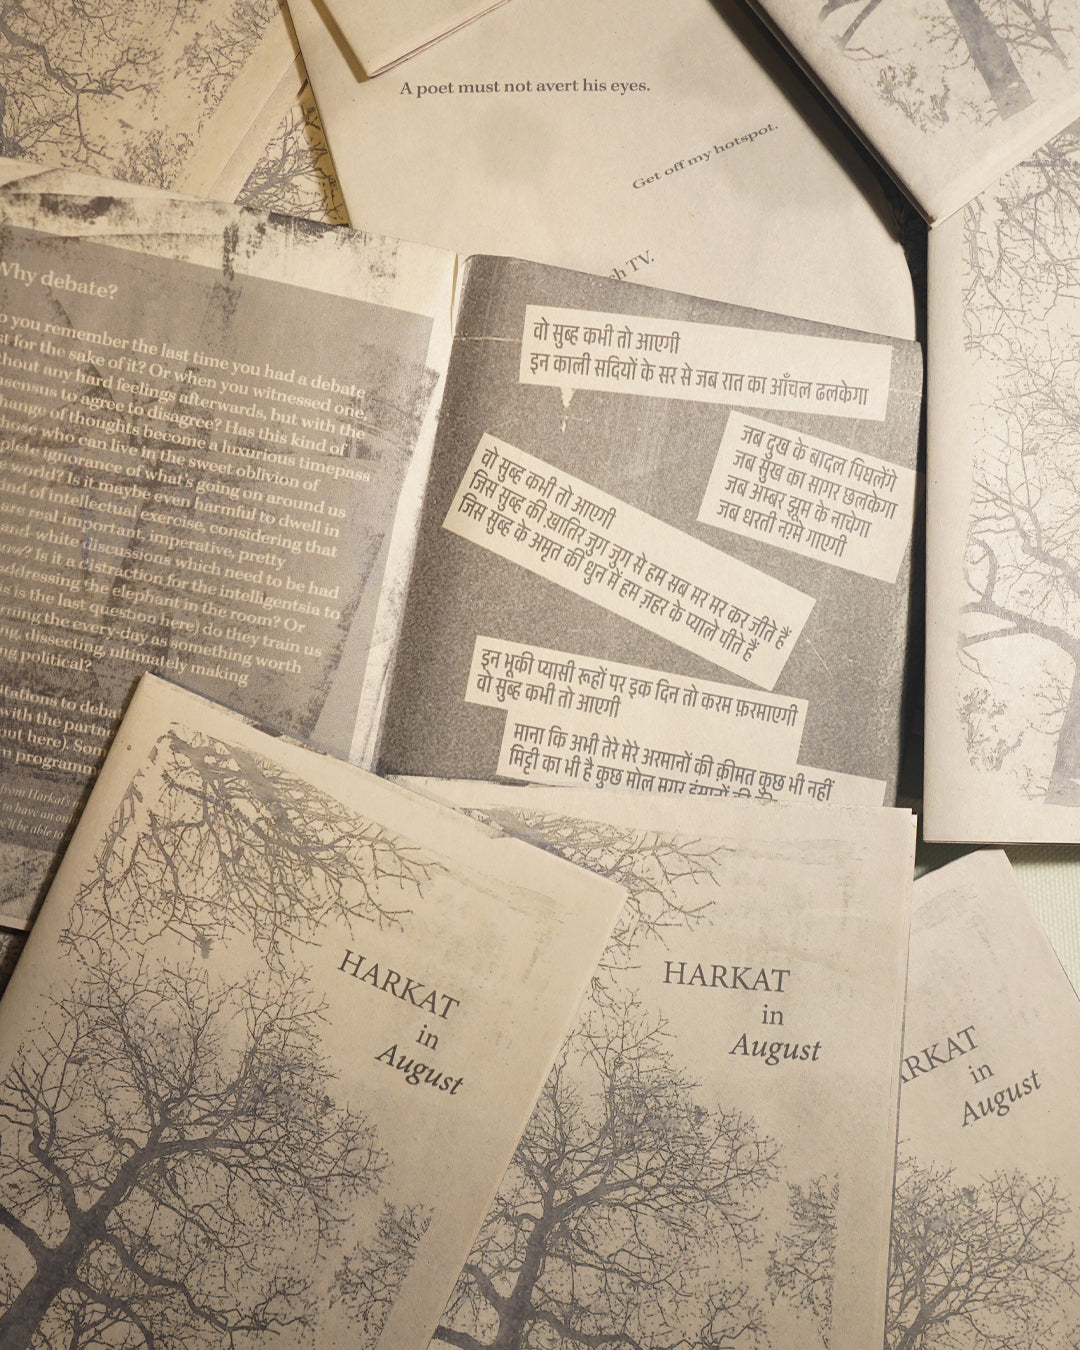 A poet must not avert his eyes.
Get off my hotspot.
TV.
Why debate?
you remember the last time you had a debate
for the sake of it? Or when you witnessed one,
any hard feelings afterwards, but with the
to agree to disagree? Has this kind of
of thoughts become a luxurious timepass
who can live in the sweet oblivion of
ignorance of what's going on around us
world? Is it maybe even harmful to dwell in
of intellectual exercise, considering that
are real important, imperative, pretty
and-white discussions which need to be had
Is it a distraction for the intelligentsia to
the elephant in the room? Or
is the last question here) do they train us
the every-day as something worth
dissecting, ultimately making
political?
to
with the
out here).
programm
from Harkat's
to have an
be able to
वो सुब्ह कभी तो आएगी
इन काली सदियों के सर से जब रात का आँचल ढलकेगा
जब दुख के बादल पिघलेंगे
जब सुख का सागर छलकेगा
जब अम्बर झूम के नाचेगा
जब धरती नग़्मे गाएगी
वो सुब्ह कभी तो आएगी
जिस सुब्ह की ख़ातिर जुग जुग से हम सब मर मर कर जीते हैं
जिस सुब्ह के अमृत की धुन में हम ज़हर के प्याले पीते हैं
इन भूकी प्यासी रूहों पर इक दिन तो करम फ़रमाएगी
वो सुब्ह कभी तो आएगी
माना कि अभी तेरे मेरे अरमानों की क़ीमत कुछ भी नहीं
मिट्टी का भी है कुछ मोल मगर इंसानों की
HARKAT
in
August
HARKAT
in
August
ARKAT
in
August